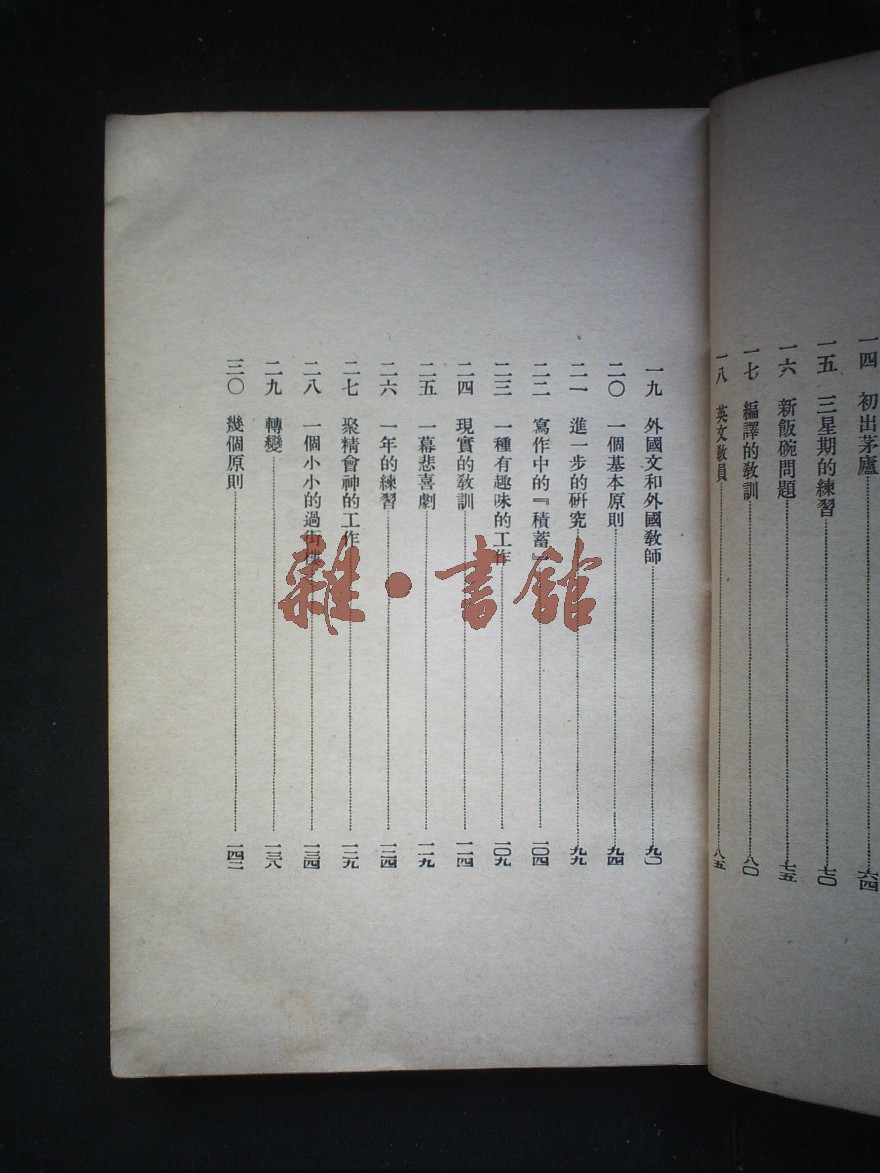 一四 初出茅廬 六四
一五 三星期的練習 七〇
一六 新飯碗問題 七五
一七 編譯的敎訓 八〇
一八 英文敎員 八五
一九 外國文和外國敎師 九〇
二〇 一個基本原則 九四
二一 進一步的硏究 九九
二二 寫作中的『積蓄』 一〇四
二三 一種有趣味的工作 一〇九
二四 現實的敎訓 一一四
二五 一幕悲喜劇 一一九
二六 一年的練習 一二四
二七 聚精會神的工作 一二九
二八 一個小小的過街樓 一三四
二九 轉變 一三八
三〇 幾個原則 一四二
雜·書館